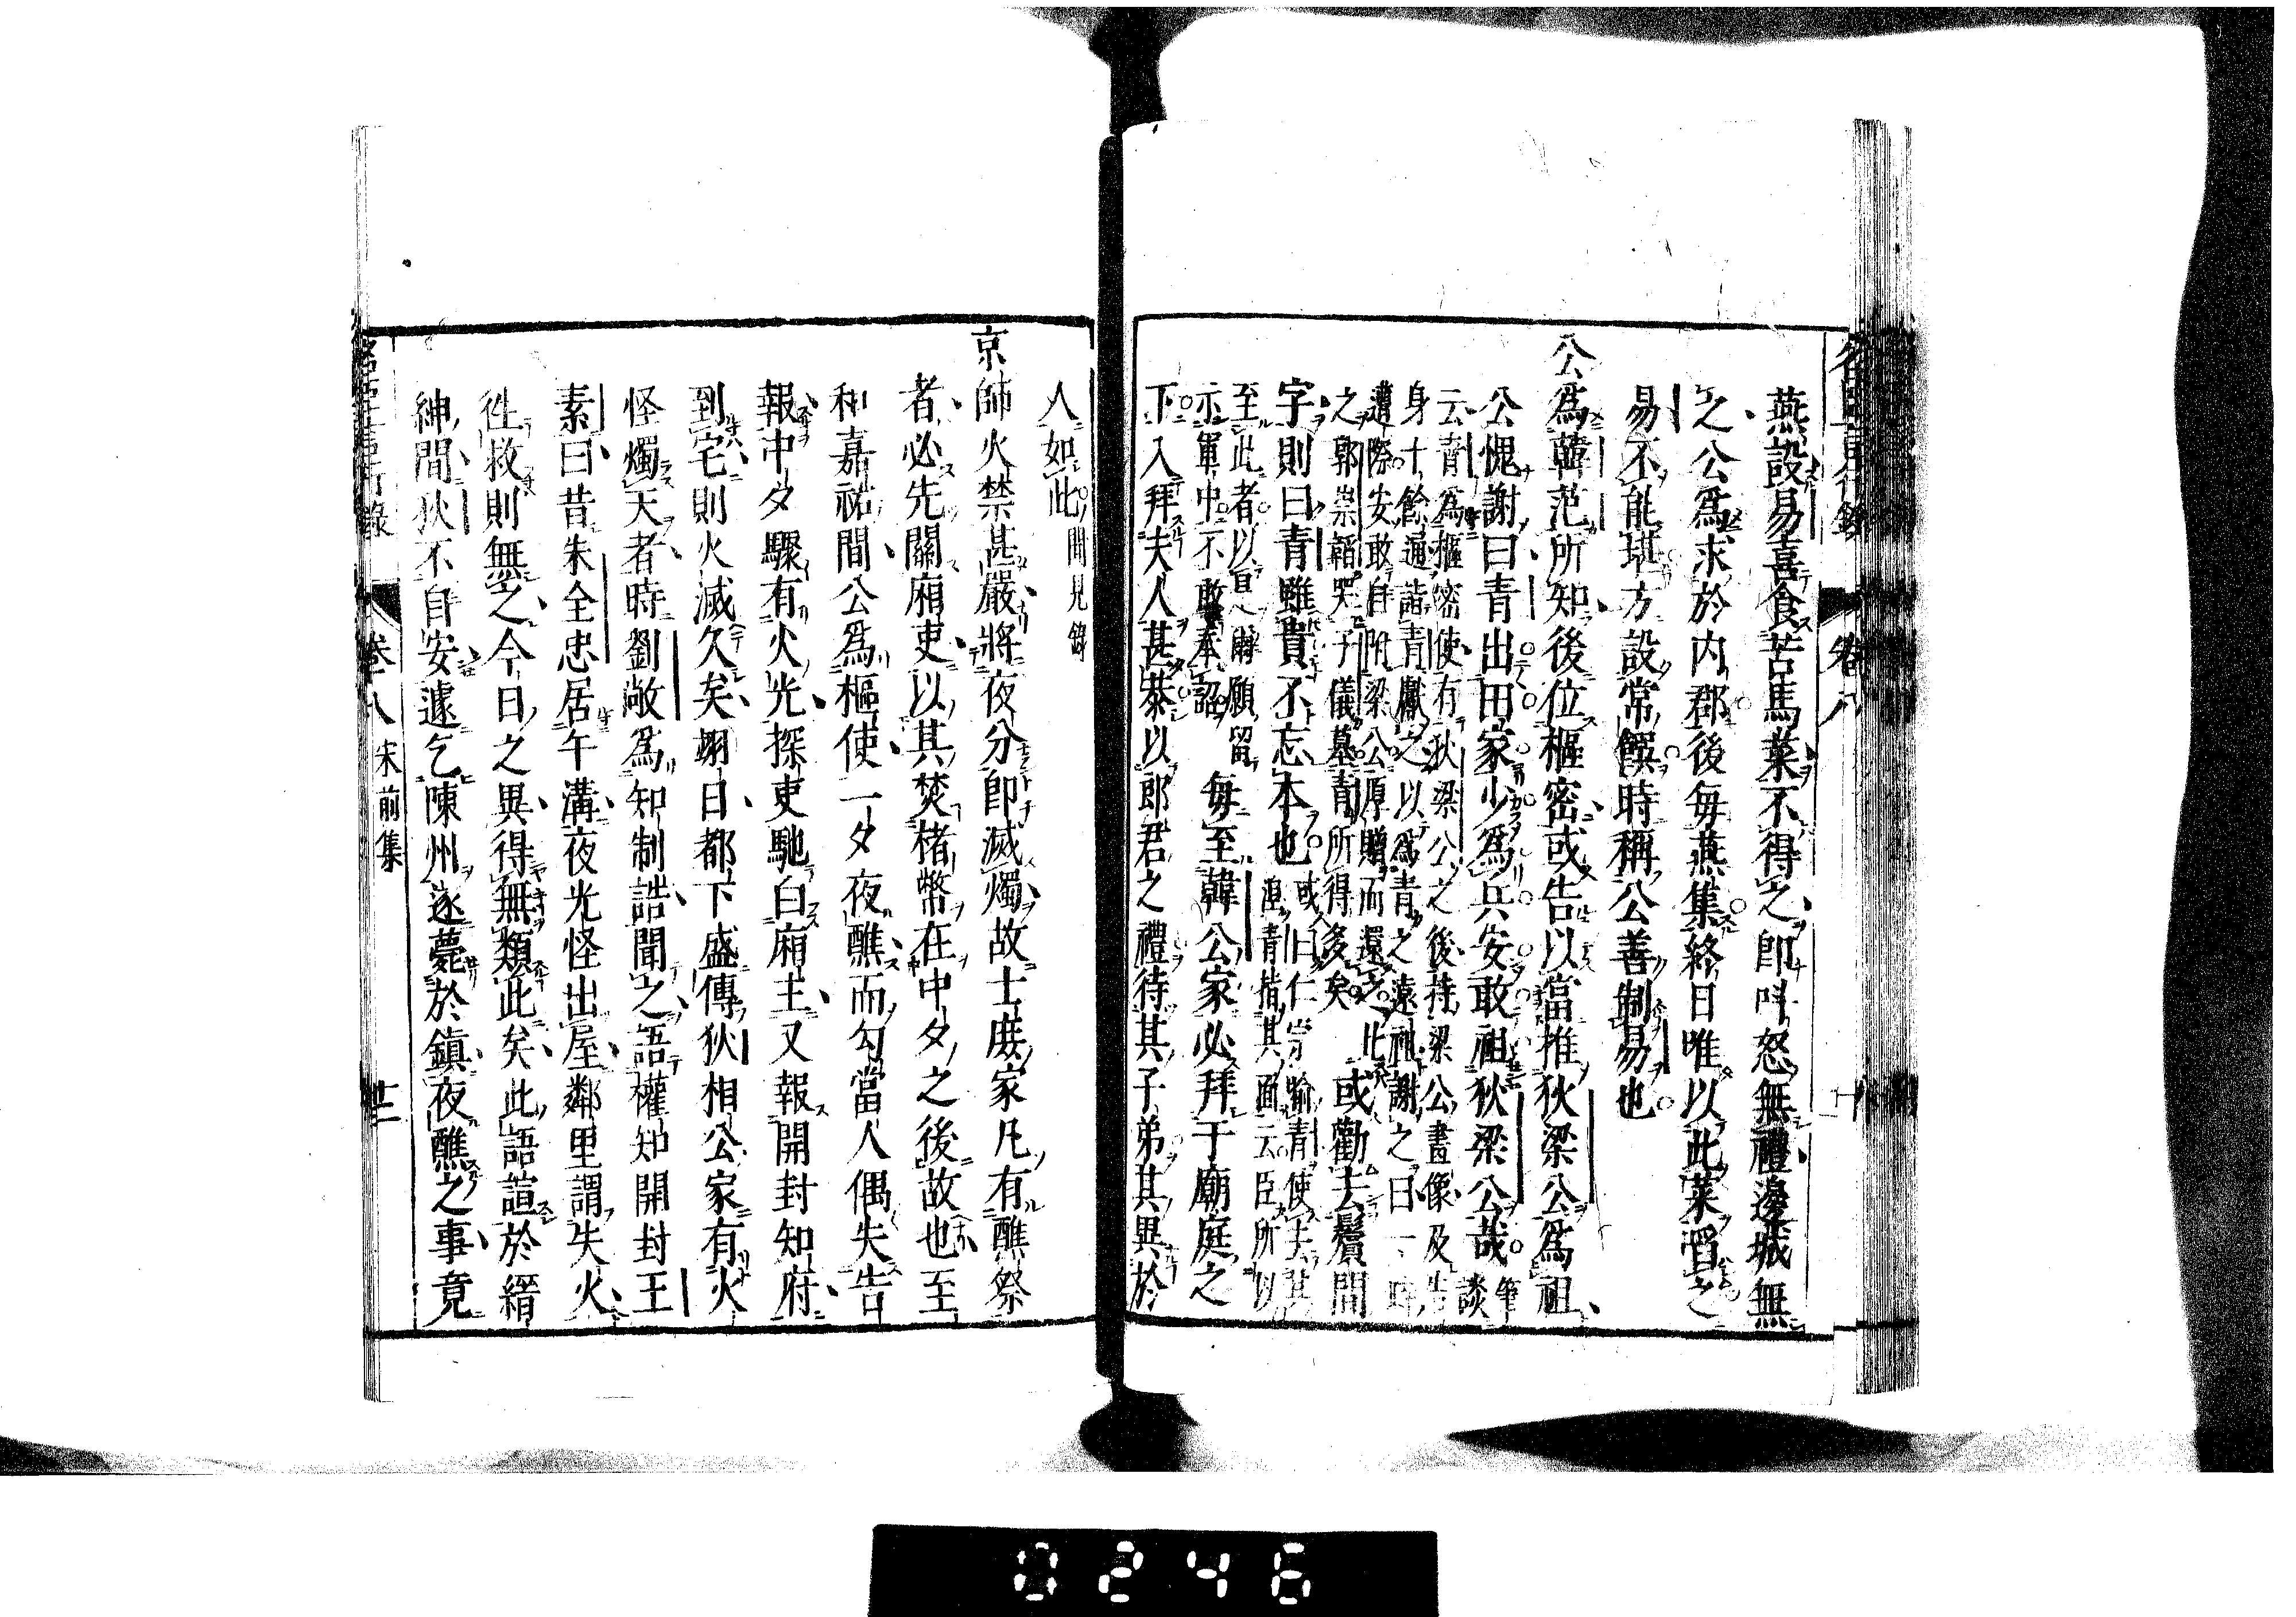 燕設易喜食苦馬菜不得之卽叫怒無禮邊城無
之公爲求於内郡後每燕集終日唯以此菜啗之
易不能堪方設常饌時稱公善制易也
公爲韓范所知後位樞密或告以當推狄梁公爲祖
公愧謝曰青出田家少爲兵安敢祖狄梁公哉 筆談
云青爲樞密使有狄梁公之後持梁公畫像及告
身十餘通詣青獻之以爲青之遠祖謝之曰一時
遭際安敢自附梁公厚贈而還之比
之郭崇韜哭子儀墓青所得多矣 或勸去鬢間
字則曰青雖貴不忘本也 或曰仁宗喻青使去其
涅青指其面云臣所以
至此者以是願留
示軍中不敢奉詔 每至韓公家必拜于廟庭之
下入拜夫人甚恭以郎君之禮待其子弟其異於
人如此 聞見錄
京師火禁甚嚴將夜分卽滅燭故士庶家凡有醮祭
者必先關廂吏以其焚楮幣在中夕之後故也至
和嘉祐間公爲樞使一夕夜醮而勾當人偶失告
報中夕驟有火光探吏馳白廂主又報開封知府
到宅則火滅久矣翊日都下盛傳狄相公家有火
怪燭天者時劉敞爲知制誥聞之語權知開封王
素曰昔朱全忠居午溝夜光怪出屋鄰里謂失火
徃救則無之今日之異得無類此矣此語諠於縉
紳間狄不自安遽乞陳州遂薨於鎭夜醮之事竟
卷八 宋前集